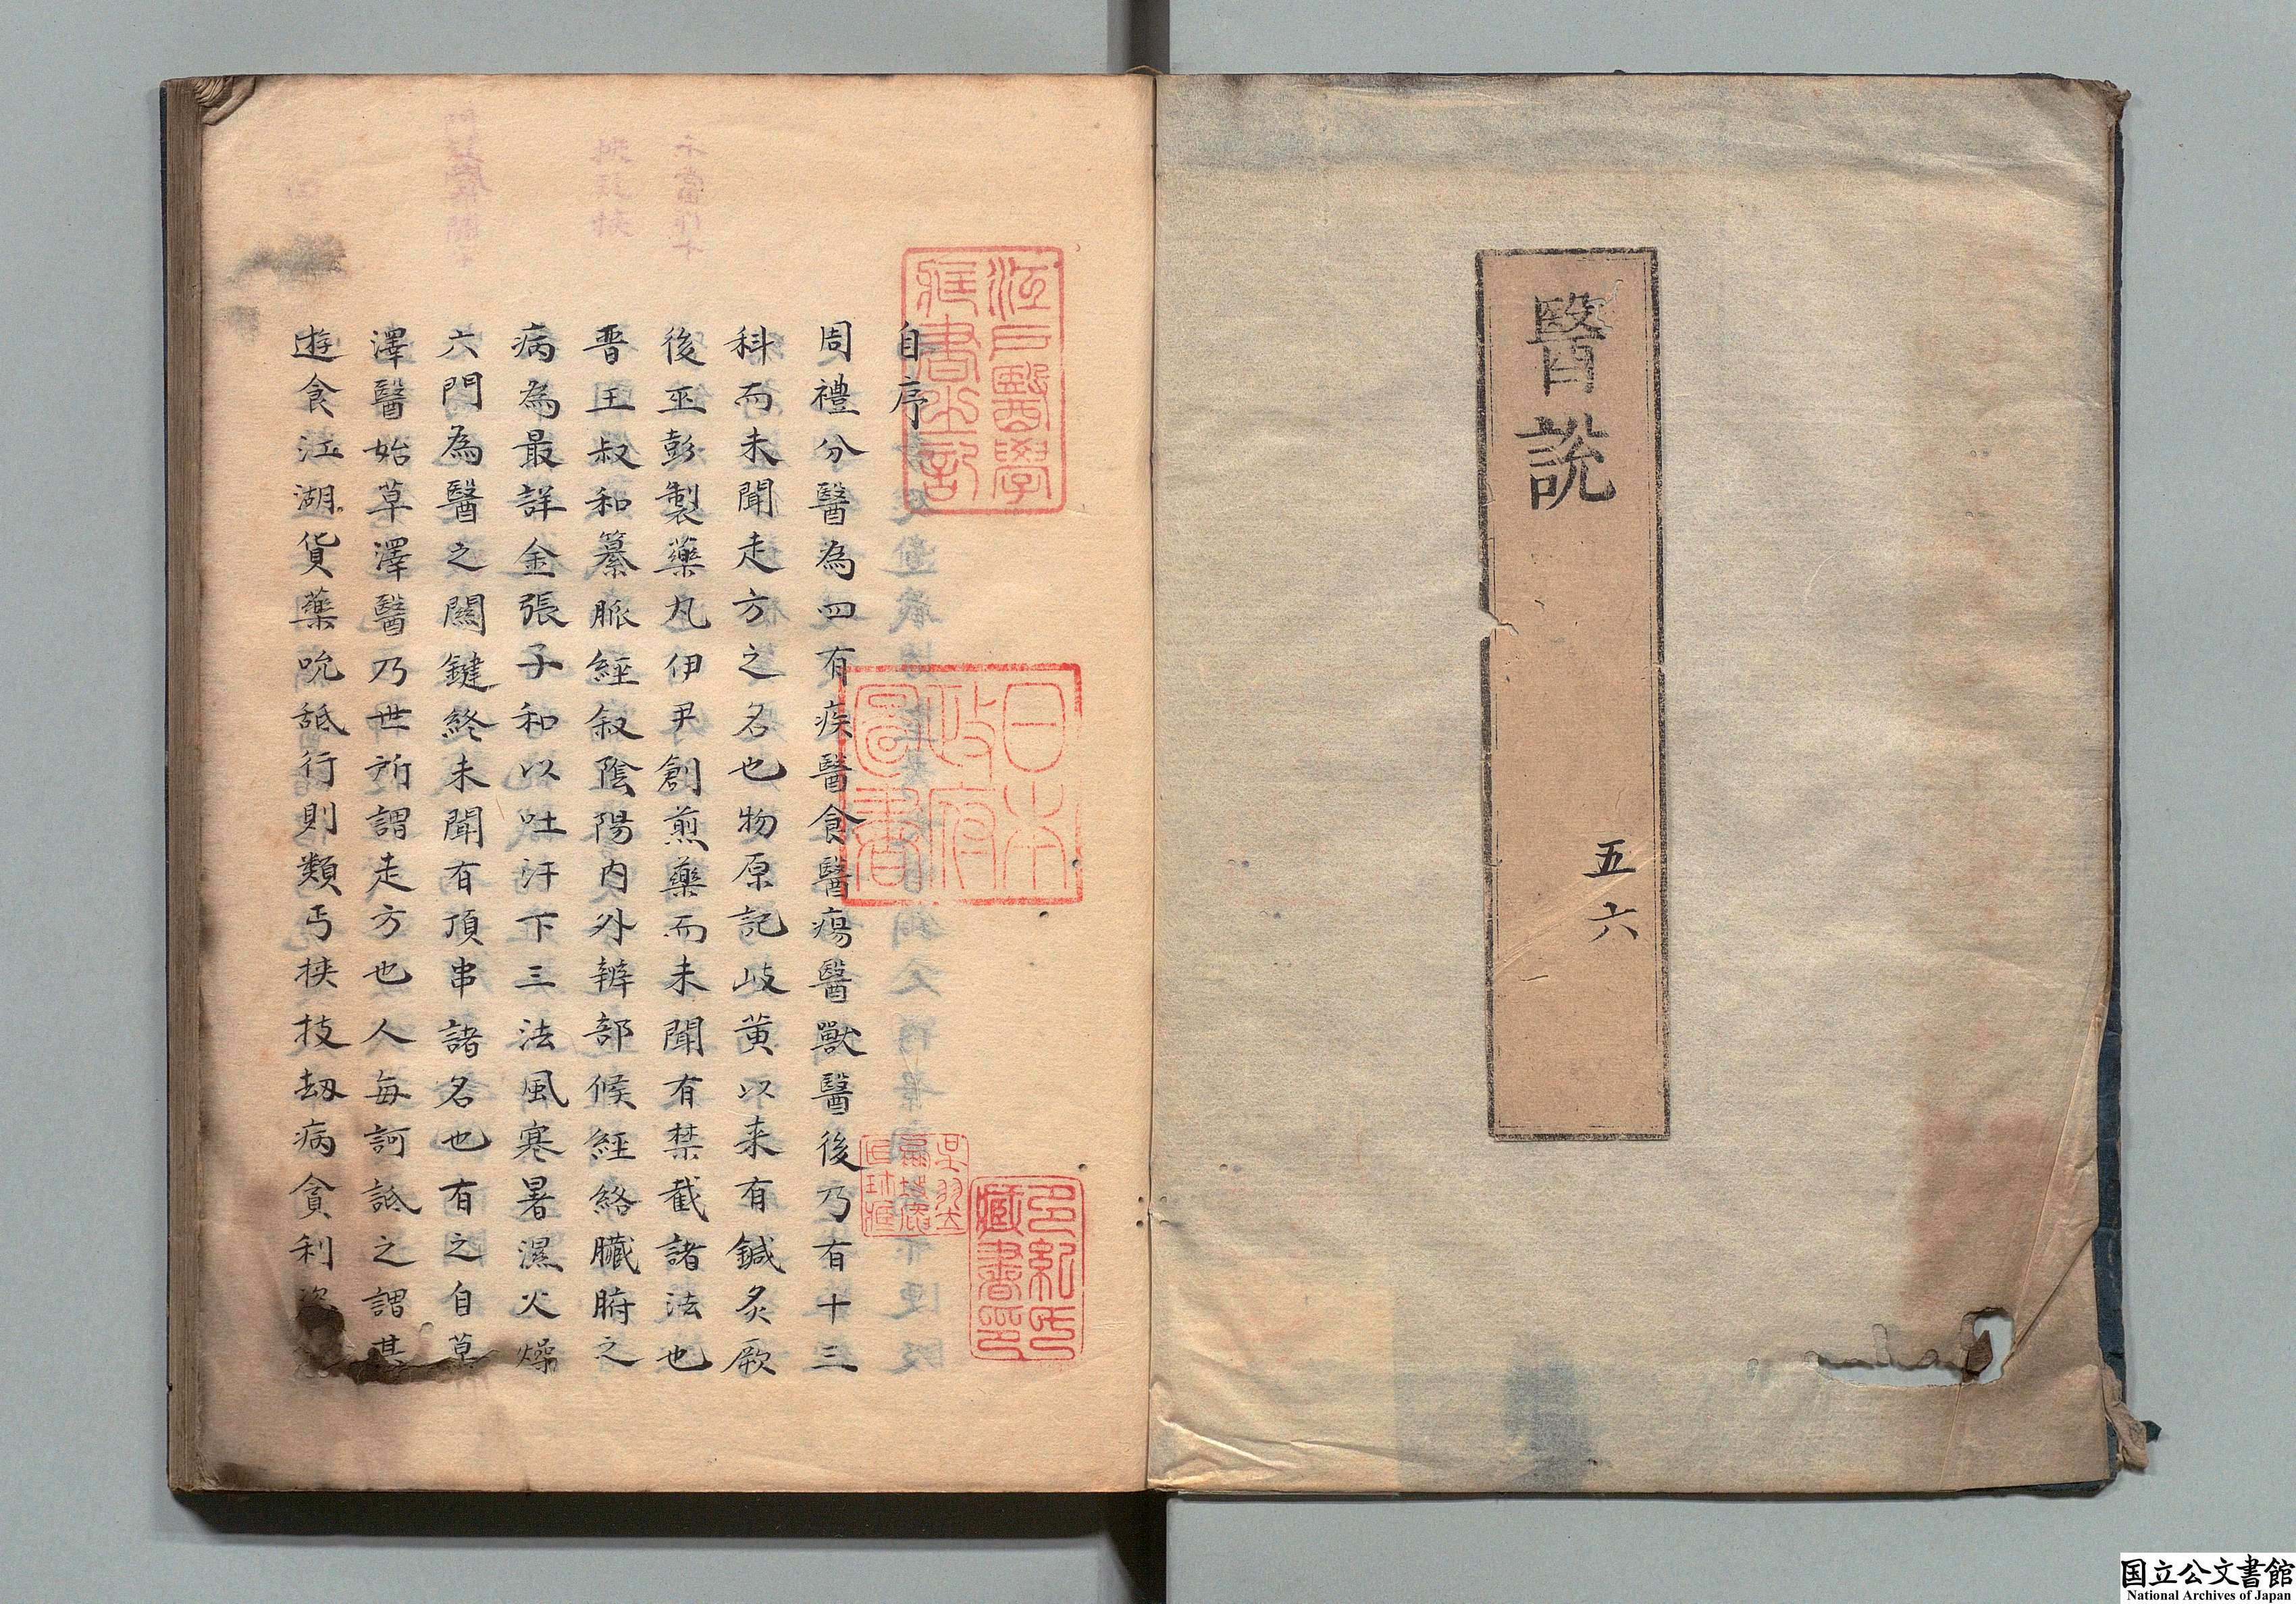 醫說
五六
江戶醫學
藏書之記
日本
政府
圖書
多紀氏
藏書印
自序
周禮分醫為四有疾醫食醫瘍醫獸醫後乃有十三
科而未聞走方之名也物原記岐黄以来有鍼灸厥
後巫彭製藥丸伊尹創煎藥而未聞有禁截諸法也
晋王叔和纂脈經叙陰陽内外辨部候經絡臓腑之
病為最詳金張子和以吐汗下三法風寒暑濕火燥
六門為醫之關鍵終未聞有頂串諸名也有之自草
澤醫始草澤醫乃世所謂走方也人每訶詆之謂其
遊食江湖貨藥吮舐行則類丐挾技劫病貪利恣
国立公文書館
National Archives of Japan